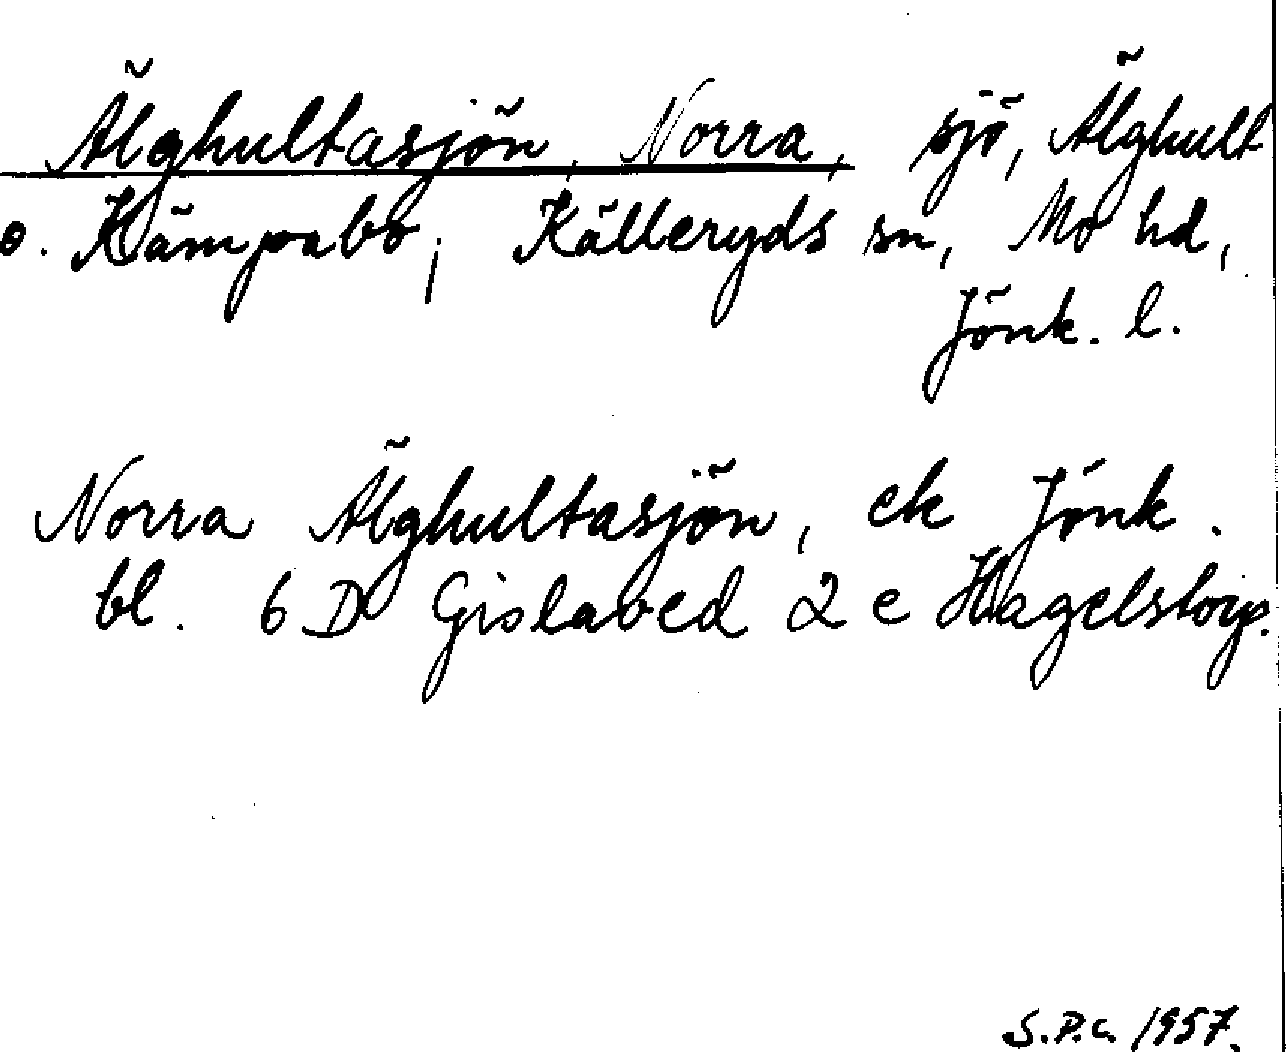 Älghultasjön, Norra, sjö, Älghult
o. Kämpabo, Källeryds sn, Mo hd,
Jönk. l.
Norra Älghultasjön, ek Jönk.
bl. 6 D Gislaved 2 e Hagelstorp.
S.P.C. 1957.